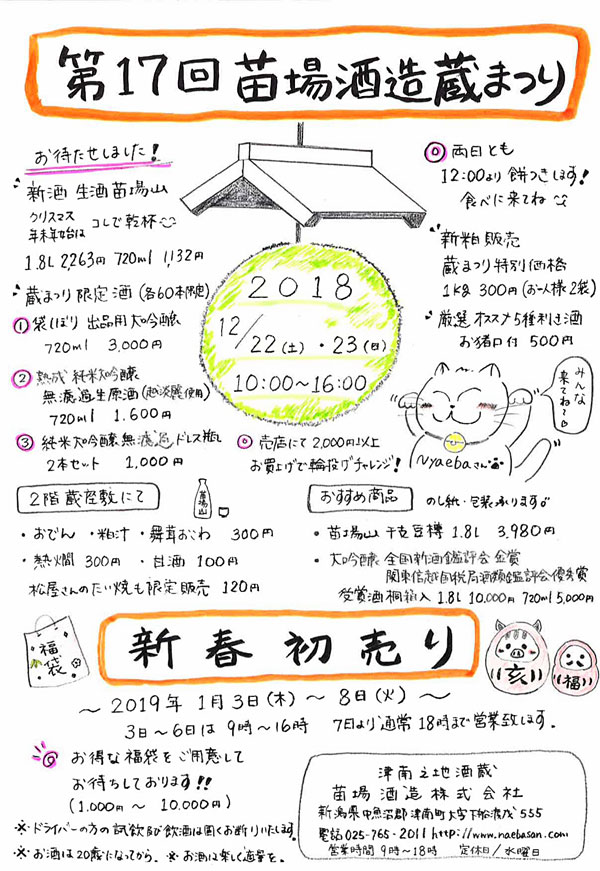 第17回 苗場酒造蔵まつり
お待たせしました!
新酒 生酒苗場山
クリスマス
年末年始は コレで乾杯
1.8L 2,263円 720ml 1,132円
蔵まつり限定酒(各60本限定)
① 袋しぼり 出品用大吟醸
720ml 3,000円
② 熟成 純米大吟醸
無濾過生原酒(越淡麗使用)
720ml 1,600円
③ 純米大吟醸無濾過ドレス瓶
2本セット 1,000円
2018
12/22(土)・23(日)
10:00〜16:00
◎ 売店にて2,000円以上
お買上げで輪投げチャレンジ!
◎ 両日とも
12:00より餅つきします!
食べに来てね
新粕販売
蔵まつり特別価格
1kg 300円(お一人様2袋)
厳選オススメ5種利き酒
お猪口付 500円
みんな
来てね〜
Nyaebaさん
2階蔵座敷にて
苗場山
・おでん ・粕汁 ・舞茸おこわ 300円
・熱燗 300円 ・甘酒 100円
松屋さんのたい焼も限定販売 120円
おすすめ商品 のし紙・包装承ります
・苗場山 干支豆樽 1.8L 3,980円
・大吟醸 全国新酒鑑評会金賞
関東信越国税局酒類鑑評会優秀賞
受賞酒桐箱入 1.8L 10,000円 720ml 5,000円
福袋
新春初売り
亥
福
〜 2019年 1月3日(木)〜 8日(火)〜
3日〜6日は 9時〜16時 7日より通常18時まで営業致します。
◎ お得な福袋をご用意して
お待ちしております!!
(1,000円 〜 10,000円)
※ドライバーの方の試飲及び飲酒は固くお断りいたします。
※お酒は20歳になってから。※お酒は楽しく適量を。
津南之地酒蔵
苗場酒造株式会社
新潟県中魚沼郡津南町大字下船渡戊555
電話025-765-2011 http://www.naebasan.com
営業時間 9時〜18時 定休日/水曜日